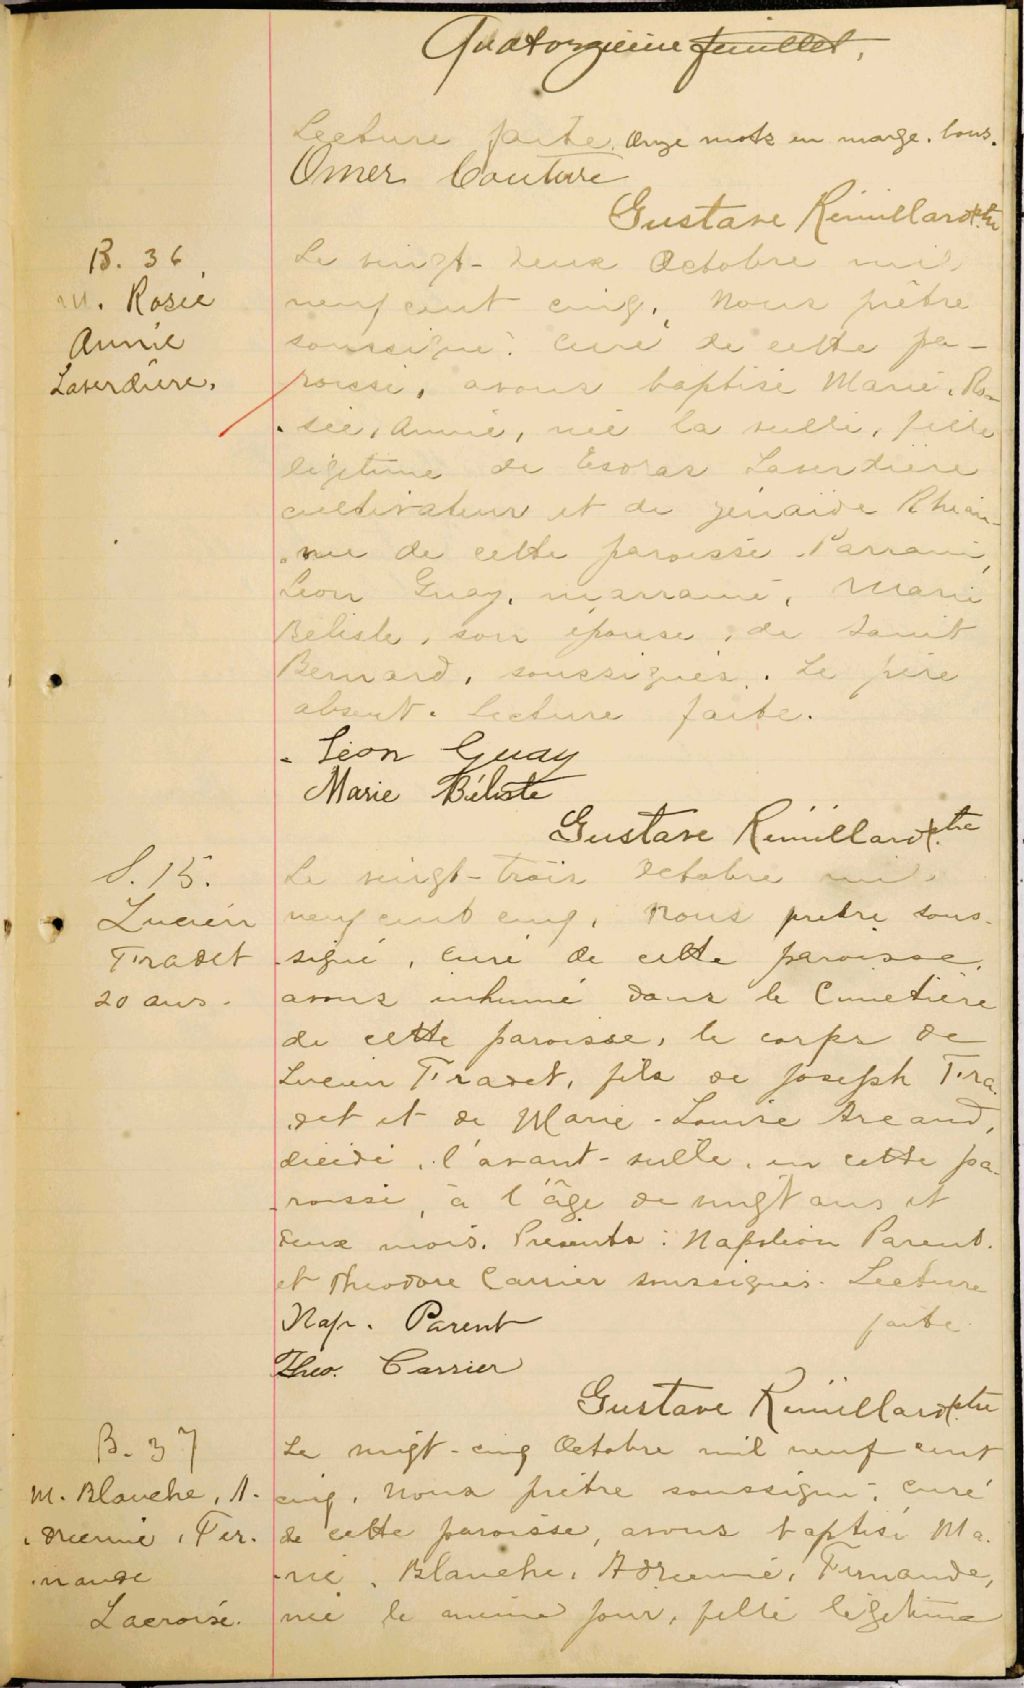 Quatorzième feuillet.
Lecture faite. Onze mots en marge. bons.
Omer Couture
Gustave Rémillard ptre
B. 36
M. Rosie
Annie
Laverdière.
Le vingt-deux Octobre mil
neuf cent cinq, Nous prêtre
soussigné, curé de cette pa-
roisse, avons baptisé Marie, Ro-
sée, Annie, née la veille, fille
légitime de Esdras Laverdière
cultivateur et de Zénaïde Rhéau-
me de cette paroisse. Parrain,
Léon Guay, marraine, Marie
Bélisle, son épouse, de Saint
Bernard, soussignés. Le père
absent. Lecture faite.
Léon Guay
Marie Béliste
Gustave Rémillard ptre
S. 15.
Lucien
Fradet
20 ans.
Le vingt-trois Octobre mil
neuf cent cinq, Nous prêtre sous-
signé, curé de cette paroisse,
avons inhumé dans le Cimetière
de cette paroisse, le corps de
Lucien Fradet, fils de Joseph Fra-
det et de Marie-Louise Arcand,
décédé, l'avant-veille, en cette pa-
roisse, à l'âge de vingt ans et
deux mois. Présents: Napoléon Parent
et Théodore Carrier soussignés. Lecture
faite
Nap. Parent
Theo. Carrier
Gustave Rémillard ptre
B. 37
M. Blanche, A-
drienne, Fer-
nande
Lacroix.
Le vingt-cinq Octobre mil neuf cent
cinq, Nous prêtre soussigné, curé
de cette paroisse, avons baptisé Ma-
rie, Blanche, Adrienne, Fernande,
née le même jour, fille légitime